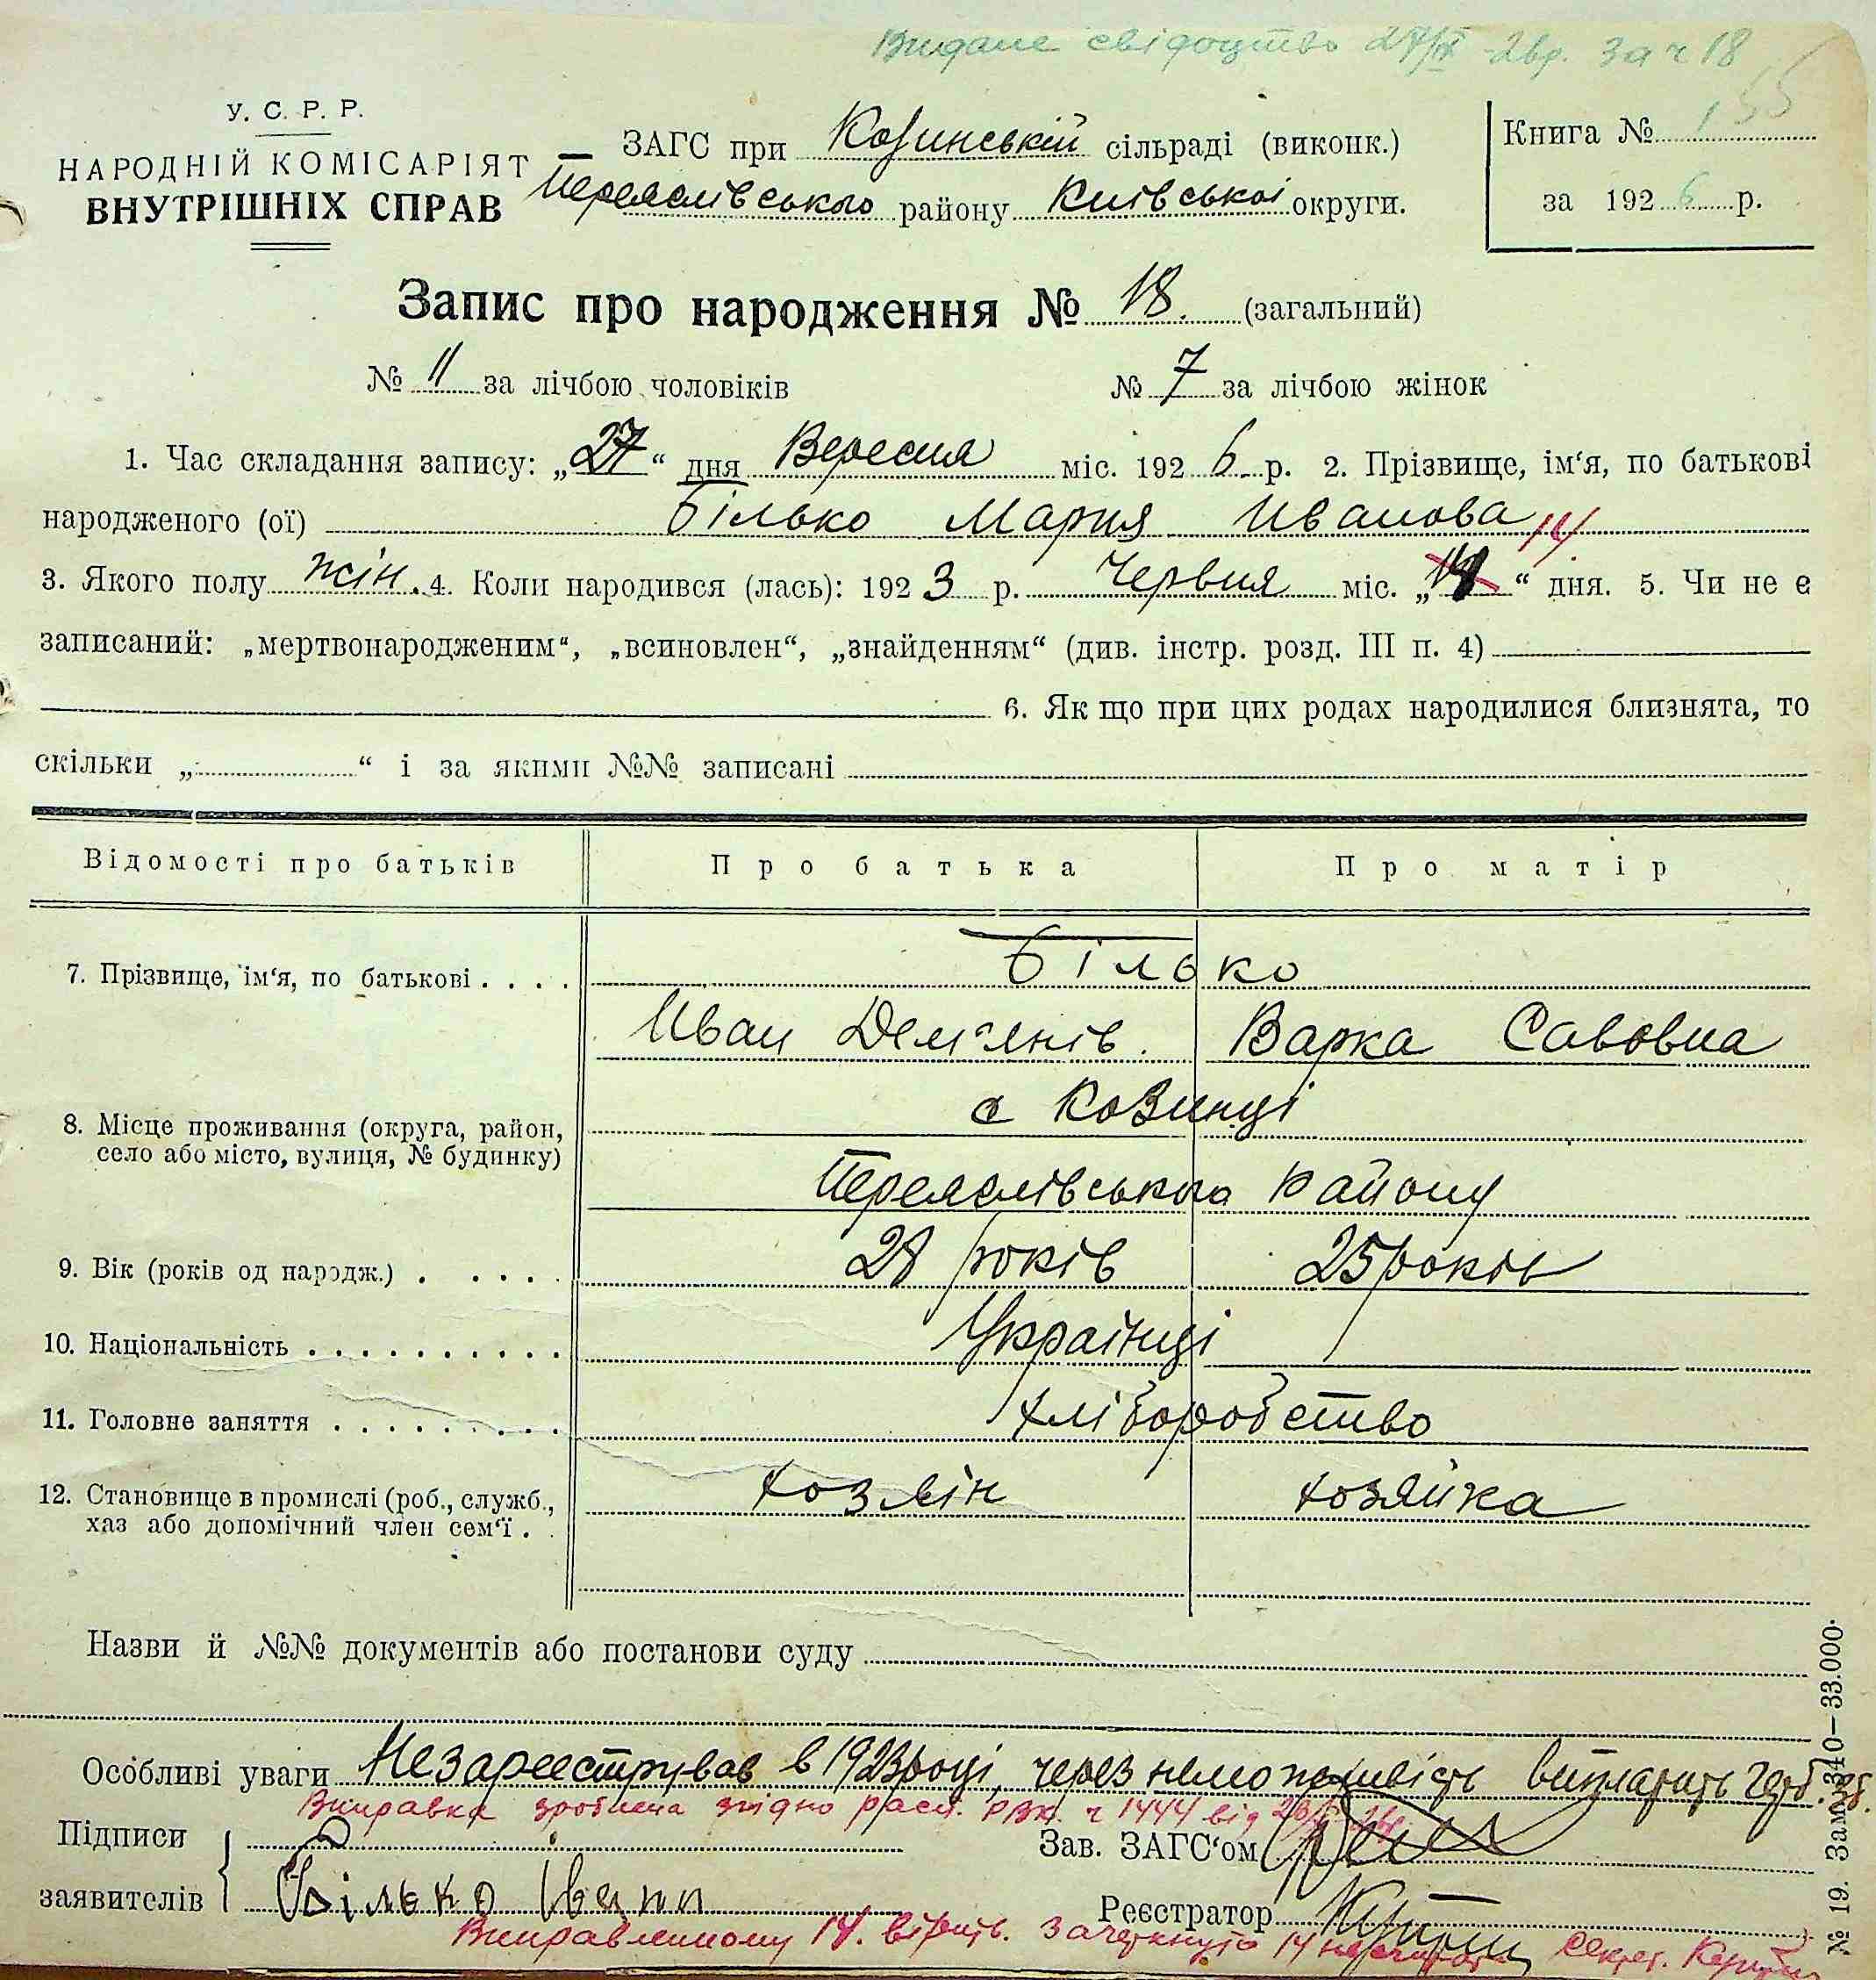 Видане свідоцтво 27/IX 26р. за ч 18
155
У. С. Р. Р.
НАРОДНІЙ КОМІСАРІЯТ
ВНУТРІШНІХ СПРАВ
ЗАГС при Козинській сільраді (виконк.)
Переяслівського району Київської округи.
Книга №
за 1926 р.
Запис про народження № 18. (загальний)
№ 11 за лічбою чоловіків № 7 за лічбою жінок
1. Час складання запису: „27“ дня Вересня міс. 1926 р. 2. Прізвище, ім‘я, по батькові
народженого (ої) Білько Мария Иванова
14
3. Якого полу жін. 4. Коли народився (лась): 1923 р. Червня міс. „14“ дня. 5. Чи не є
записаний: „мертвонародженим“, „всиновлен“, „знайденням“ (див. інстр. розд. III п. 4)
6. Як що при цих родах народилися близнята, то
скільки „ “ і за якими №№ записані
Відомості про батьків Про батька Про матір
7. Прізвище, ім‘я, по батькові . . . . Білько
Иван Дем‘янів. Варка Савовна
8. Місце проживання (округа, район, село або місто, вулиця, № будинку) с Козинці
Переяслівського району
9. Вік (років од народж.) . . . . . 28 років 25 років
10. Національність . . . . . . . . . . . Українці
11. Головне заняття . . . . . . . . . . Хліборобство
12. Становище в промислі (роб., служб., хаз або допомічний член сем‘ї . . хозяін хозяйка
Назви й №№ документів або постанови суду
Особливі уваги Незареєстрував в 1923 році, через неможливість виплатить герб. зб.
Виправка зроблена згідно расп. РВК. ч 1444 від
Підписи
заявителів
Білько Іван
Зав. ЗАГС‘ом
Реєстратор
Виправленному 14. вірить. Зачеркнуто 14 Секрет.
№ 19. Зам. 340—33.000.